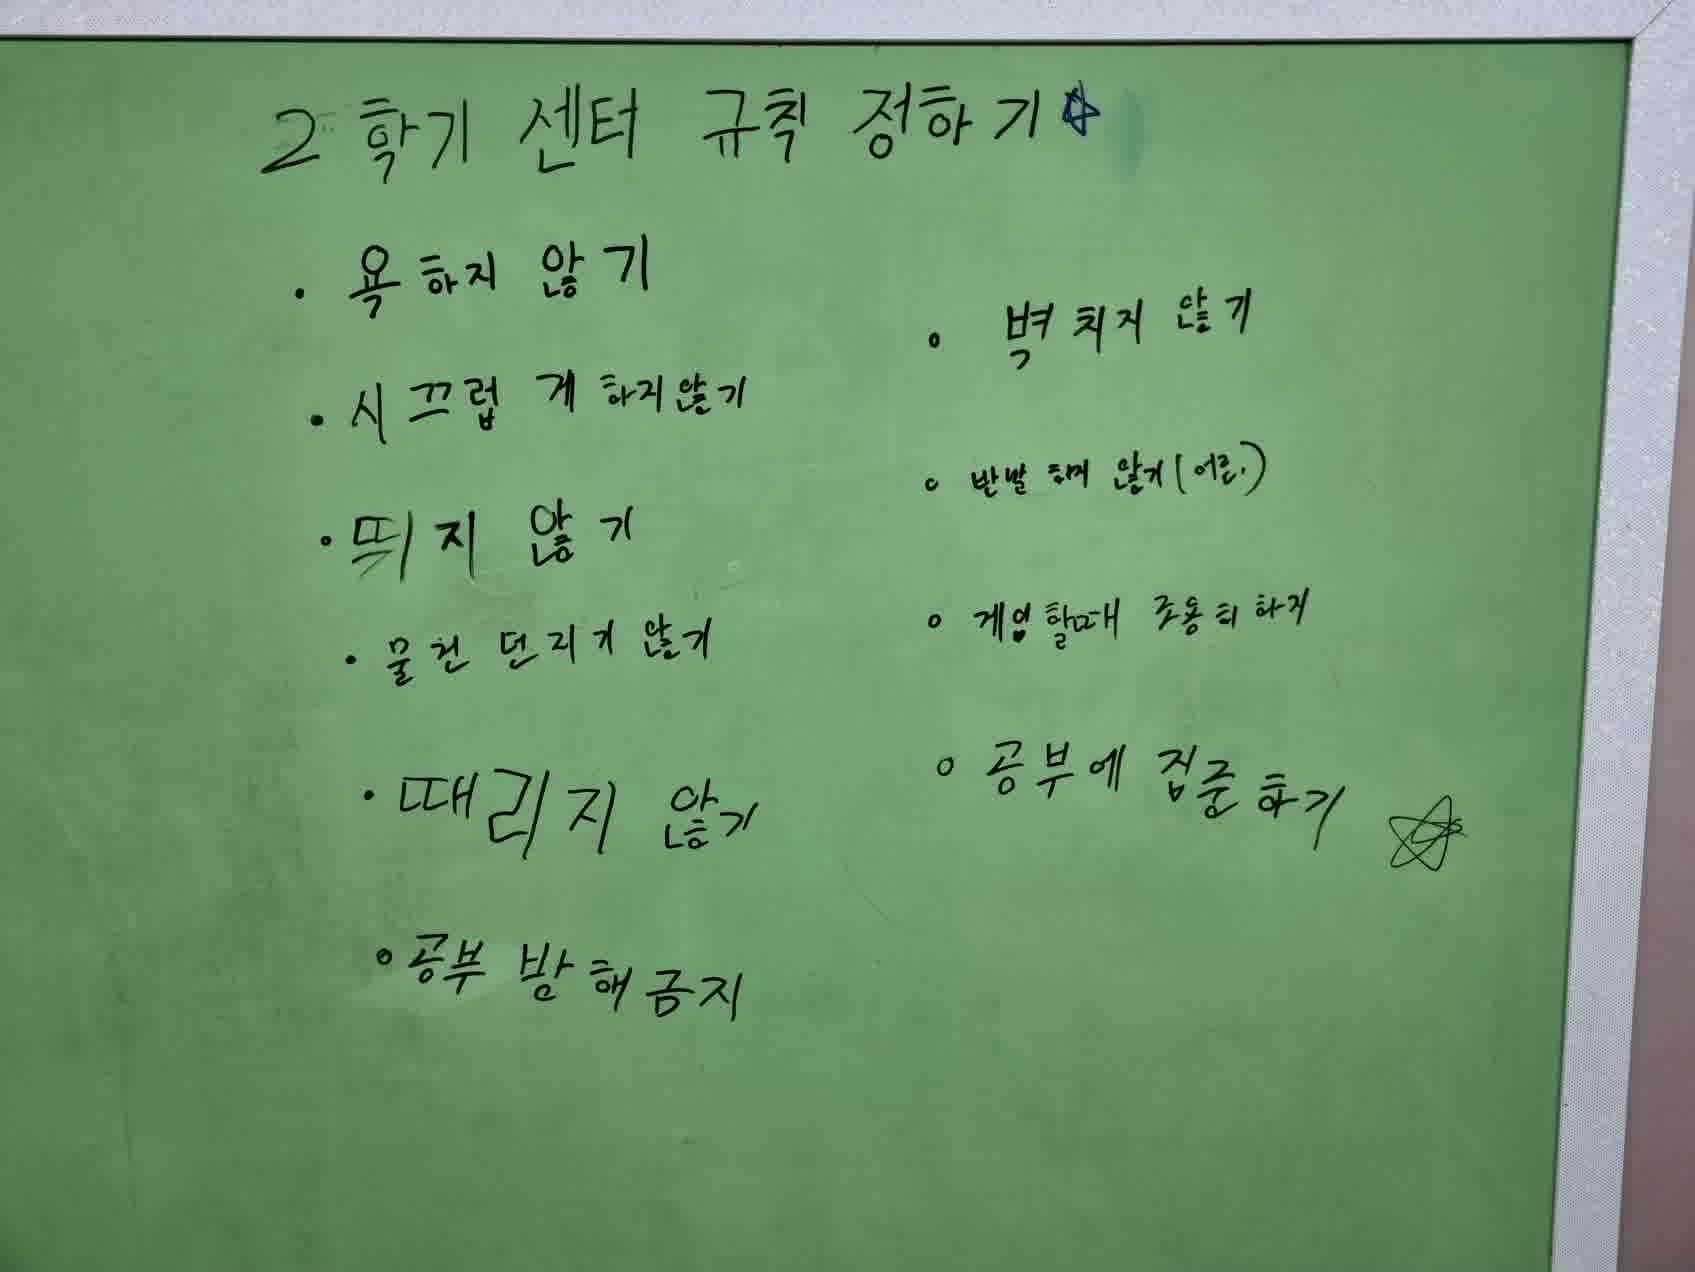 2학기 센터 규칙 정하기
· 욕하지 않기
· 시끄럽게 하지않기
· 띄지 않기
· 물건 던지기 않기
· 때리지 않기
· 공부 방해금지
· 벽치지 않기
· 반발 하지 않기(어른.)
· 게임할때 조용히하지
· 공부에 집중하기